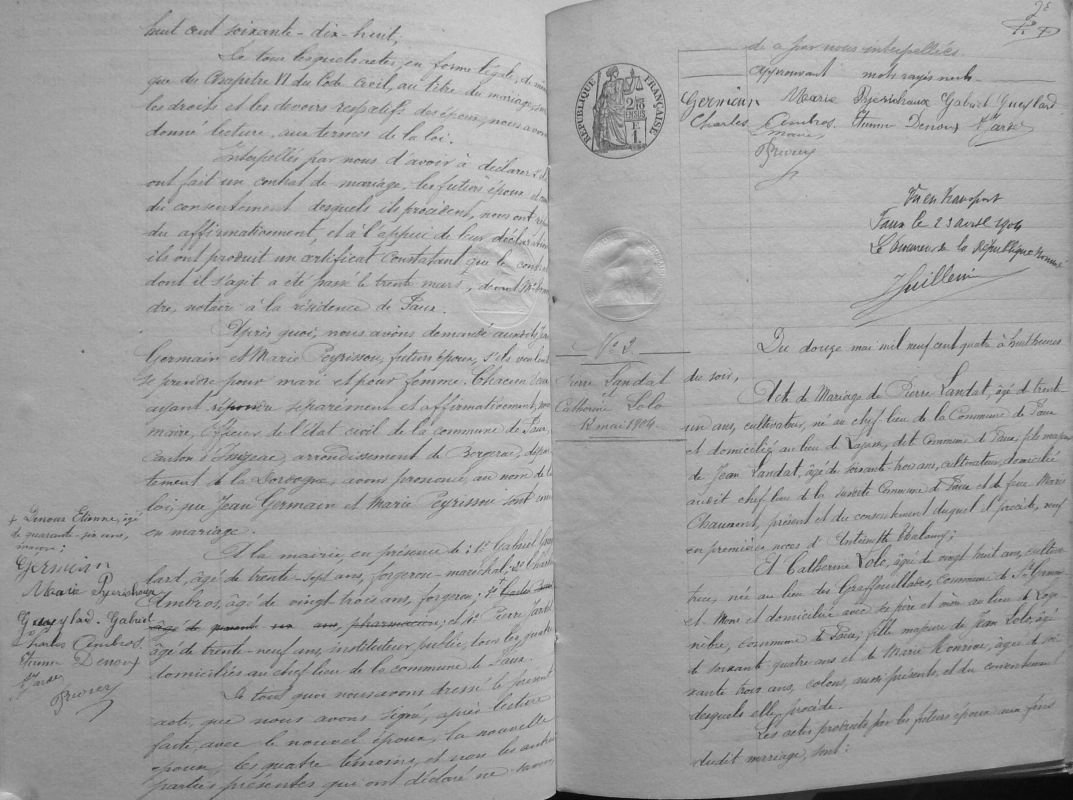 huit cent soixante-dix-huit,
De tous lesquels actes, en forme légale, de même
que du Chapitre VI du Code Civil, au titre du mariage, sur
les droits et les devoirs respectifs des époux, nous avons
donné lecture, aux termes de la loi.
Interpellés par nous d'avoir à déclarer s'ils
ont fait un contrat de mariage, les futurs époux et ceux
du consentement desquels ils procèdent, nous ont répon
du affirmativement, et à l'appui de leur déclaration
ils ont produit un certificat constatant que le contrat
dont il s'agit a été passé le trente mars, devant Me
dre, notaire à la résidence de Faux.
Après quoi, nous avons demandé auxdits Jean
Germain et Marie Peyrissou, futurs époux, s'ils veulent
se prendre pour mari et pour femme. Chacun d'eux
ayant répondu séparément et affirmativement, nous
maire, officier de l'état civil de la commune de Faux,
canton d'Issigeac, arrondissement de Bergerac, dépar
tement de la Dordogne, avons prononcé, au nom de la
loi, que Jean Germain et Marie Peyrissou sont unis
en mariage.
À la mairie en présence de : 1° Gabriel Guey
lard, âgé de trente-sept ans, forgeron-maréchal ; 2° Charles
Ambros, âgé de vingt-trois ans, forgeron ; 3°
âgé de quarante six ans, pharmacien ; et 4° Pierre Jarde
âgé de trente-neuf ans, instituteur public, tous les quatre
domiciliés au chef lieu de la commune de Faux.
De tout quoi nous avons dressé le présent
acte, que nous avons signé, après lecture
faite, avec le nouvel époux, la nouvelle
épouse, les quatre témoins, et non les autres
parties présentes qui ont déclaré ne savoir
+ Denoux Etienne, âgé
de quarante-six ans,
Germain
Marie
Gueylard Gabriel
Charles Ambros
Denoux
Jarde
de ce par nous interpellées.
Approuvant mots rayés nuls.
Germain Marie Gabriel Gueylard
Charles Ambros. Denoux Jarde
maire
RÉPUBLIQUE FRANÇAISE
Vu en transport
Faux le 23 avril 1904
de la République
Guillem
No 3.
Pierre Landat
et
Catherine Lolo
12 mai 1904.
Du douze mai mil neuf cent quatre à huit heures
du soir,
Acte de Mariage de Pierre Landat, âgé de trente-
un ans, cultivateur, né au chef-lieu de la Commune de Faux
et domicilié au lieu de dite Commune de Faux, fils majeur
de Jean Landat, âgé de soixante-trois ans, cultivateur, domicilié
audit chef-lieu de la susdite Commune de Faux et de feue Marie
Chauvant, présent et du consentement duquel il procède, veuf
en premières noces d'Antoinette
Et Catherine Lolo, âgée de vingt huit ans, cultiva-
trice, née au lieu des Graffouillades, Commune de St Germain
et Mons et domiciliée avec ses père et mère au lieu de
commune de Faux, fille majeure de Jean Lolo, âgé
de soixante quatre ans et de Marie âgée de soi
xante trois ans, colons, aussi présents, et du consentement
desquels elle procède.
Les actes produits par les futurs époux aux fins
dudit mariage, sont :